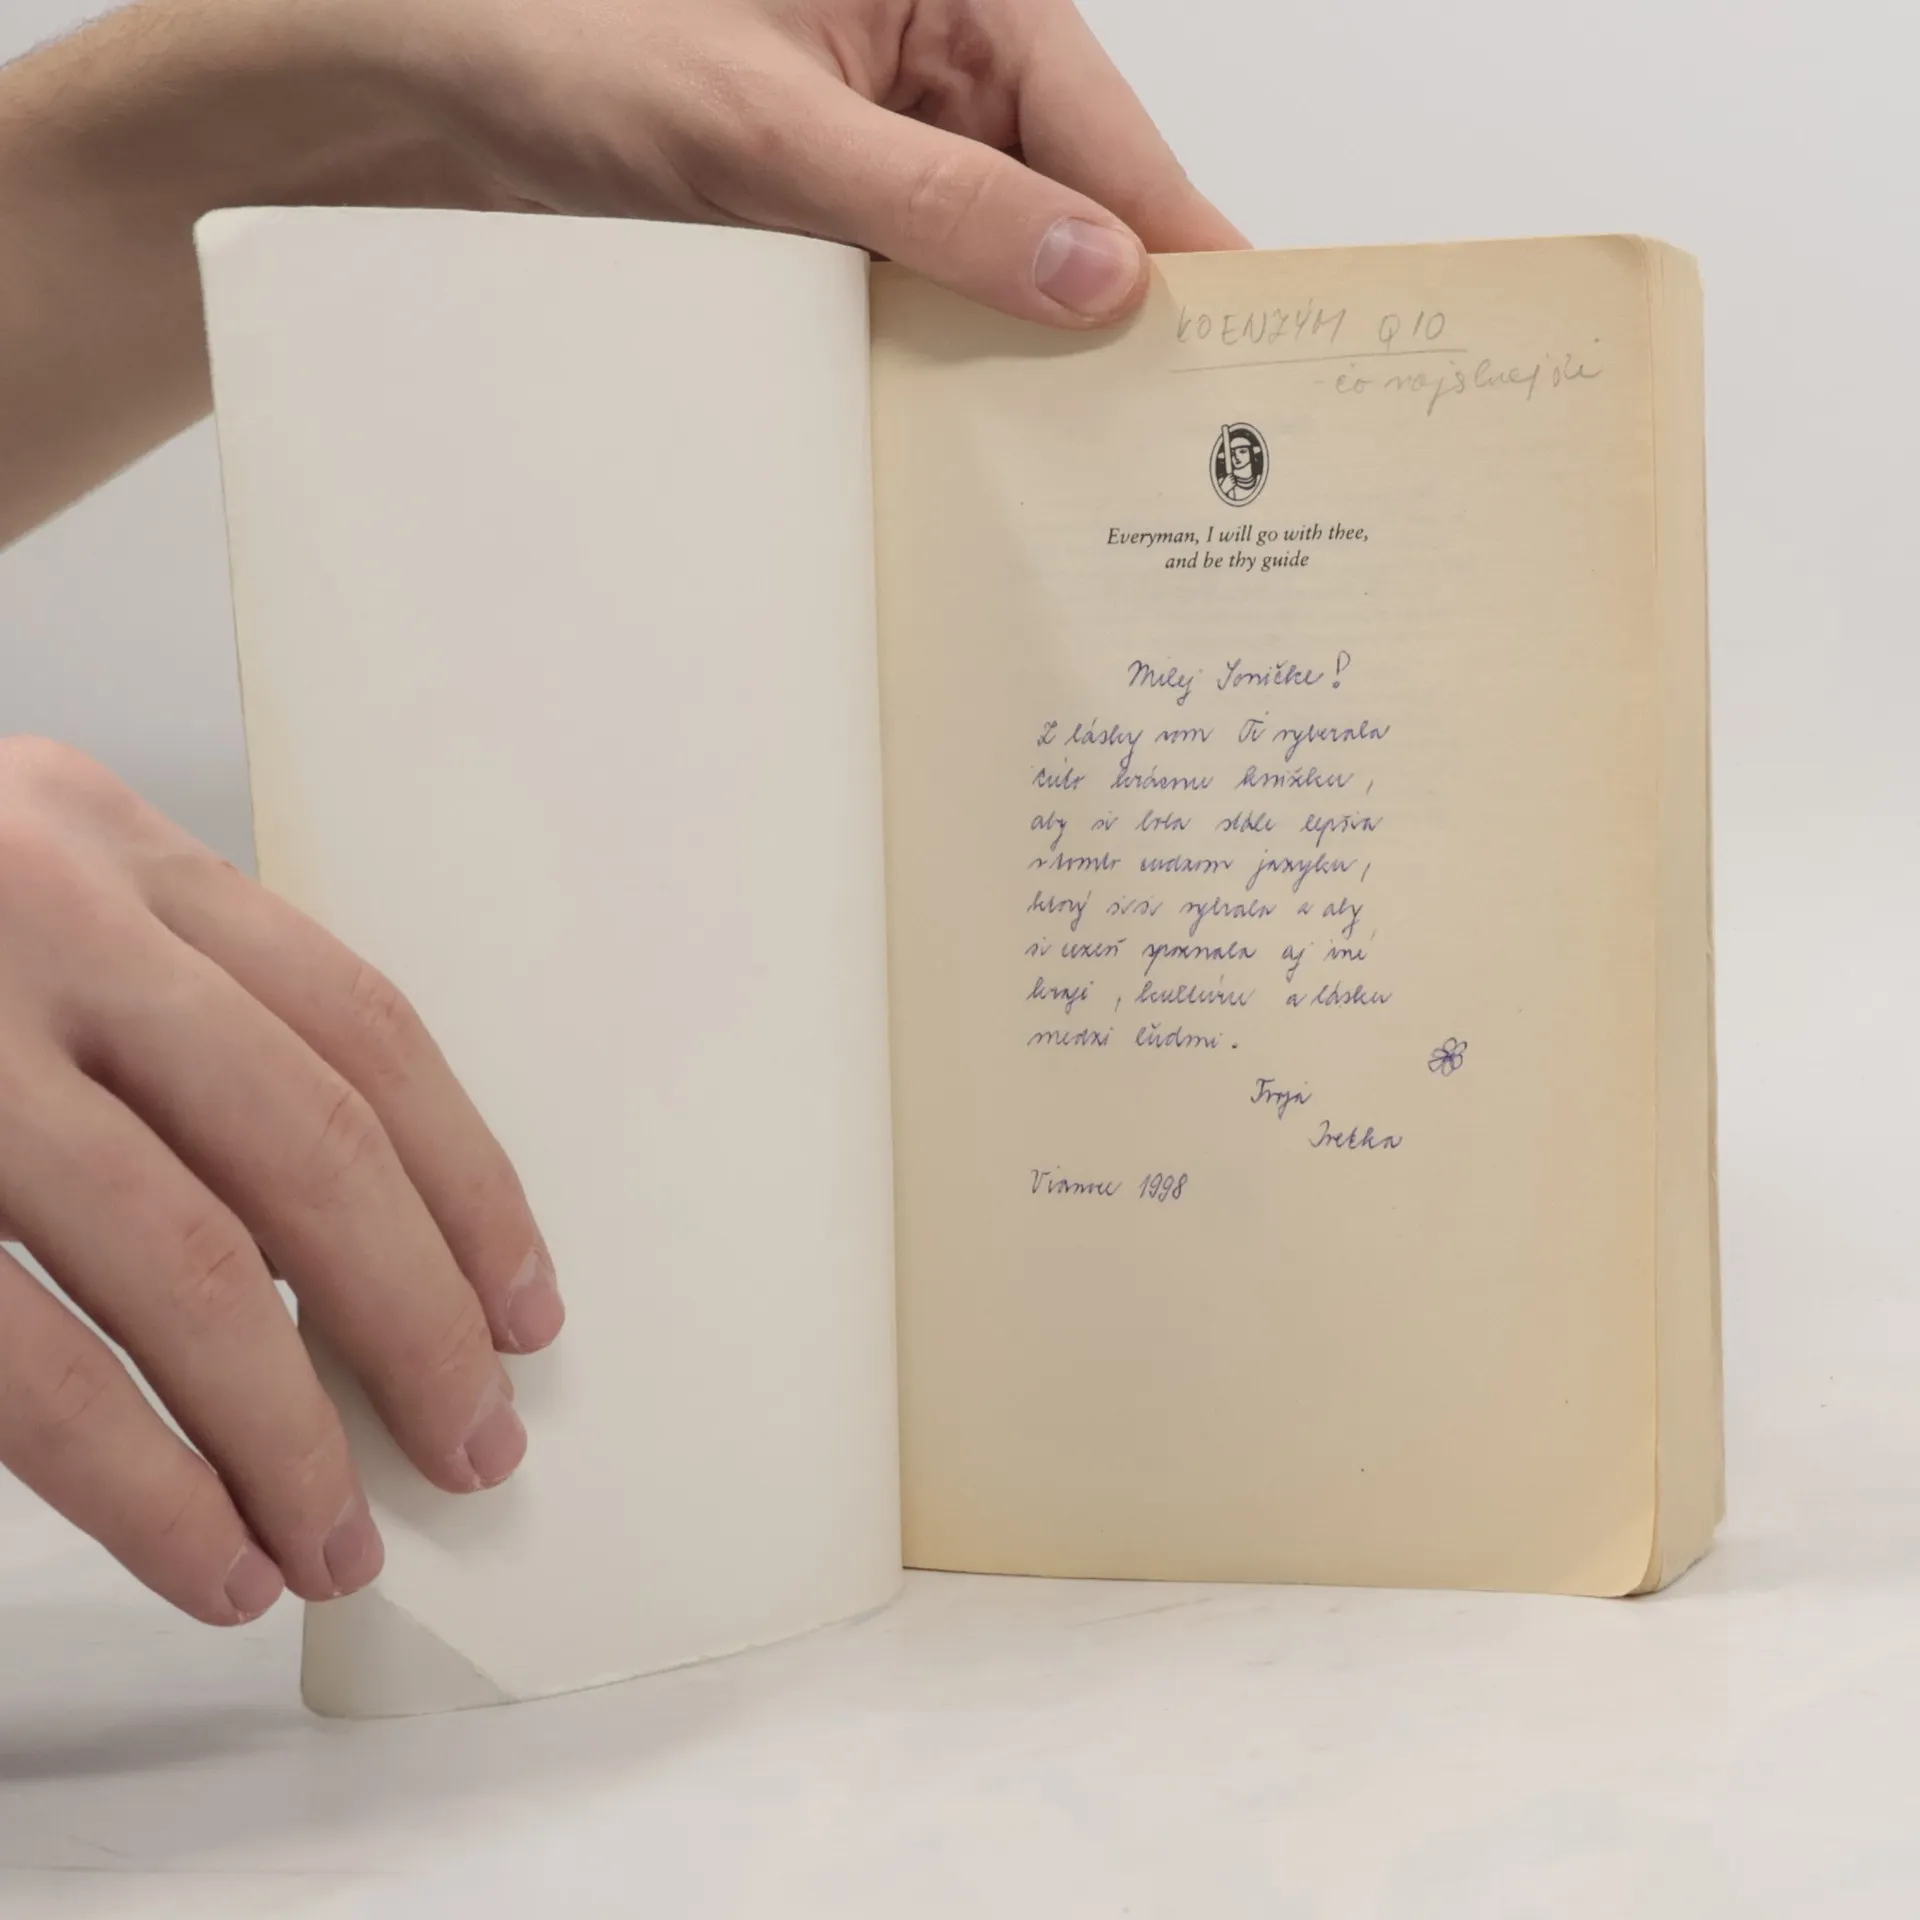 KOENZÝM Q10
- čo najsilnejší
Everyman, I will go with thee,
and be thy guide
Milej Soničke!
Z lásky som Ti vyberala
túto krásnu knižku,
aby si bola stále lepšia
v tomto cudzom jazyku,
ktorý si si vybrala a aby
si cezeň spoznala aj iné
kraje, kultúru a lásku
medzi ľuďmi.
Tvoja
Iretka
Vianoce 1998